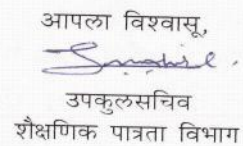 आपला विश्वासू,
उपकुलसचिव
शैक्षणिक पात्रता विभाग